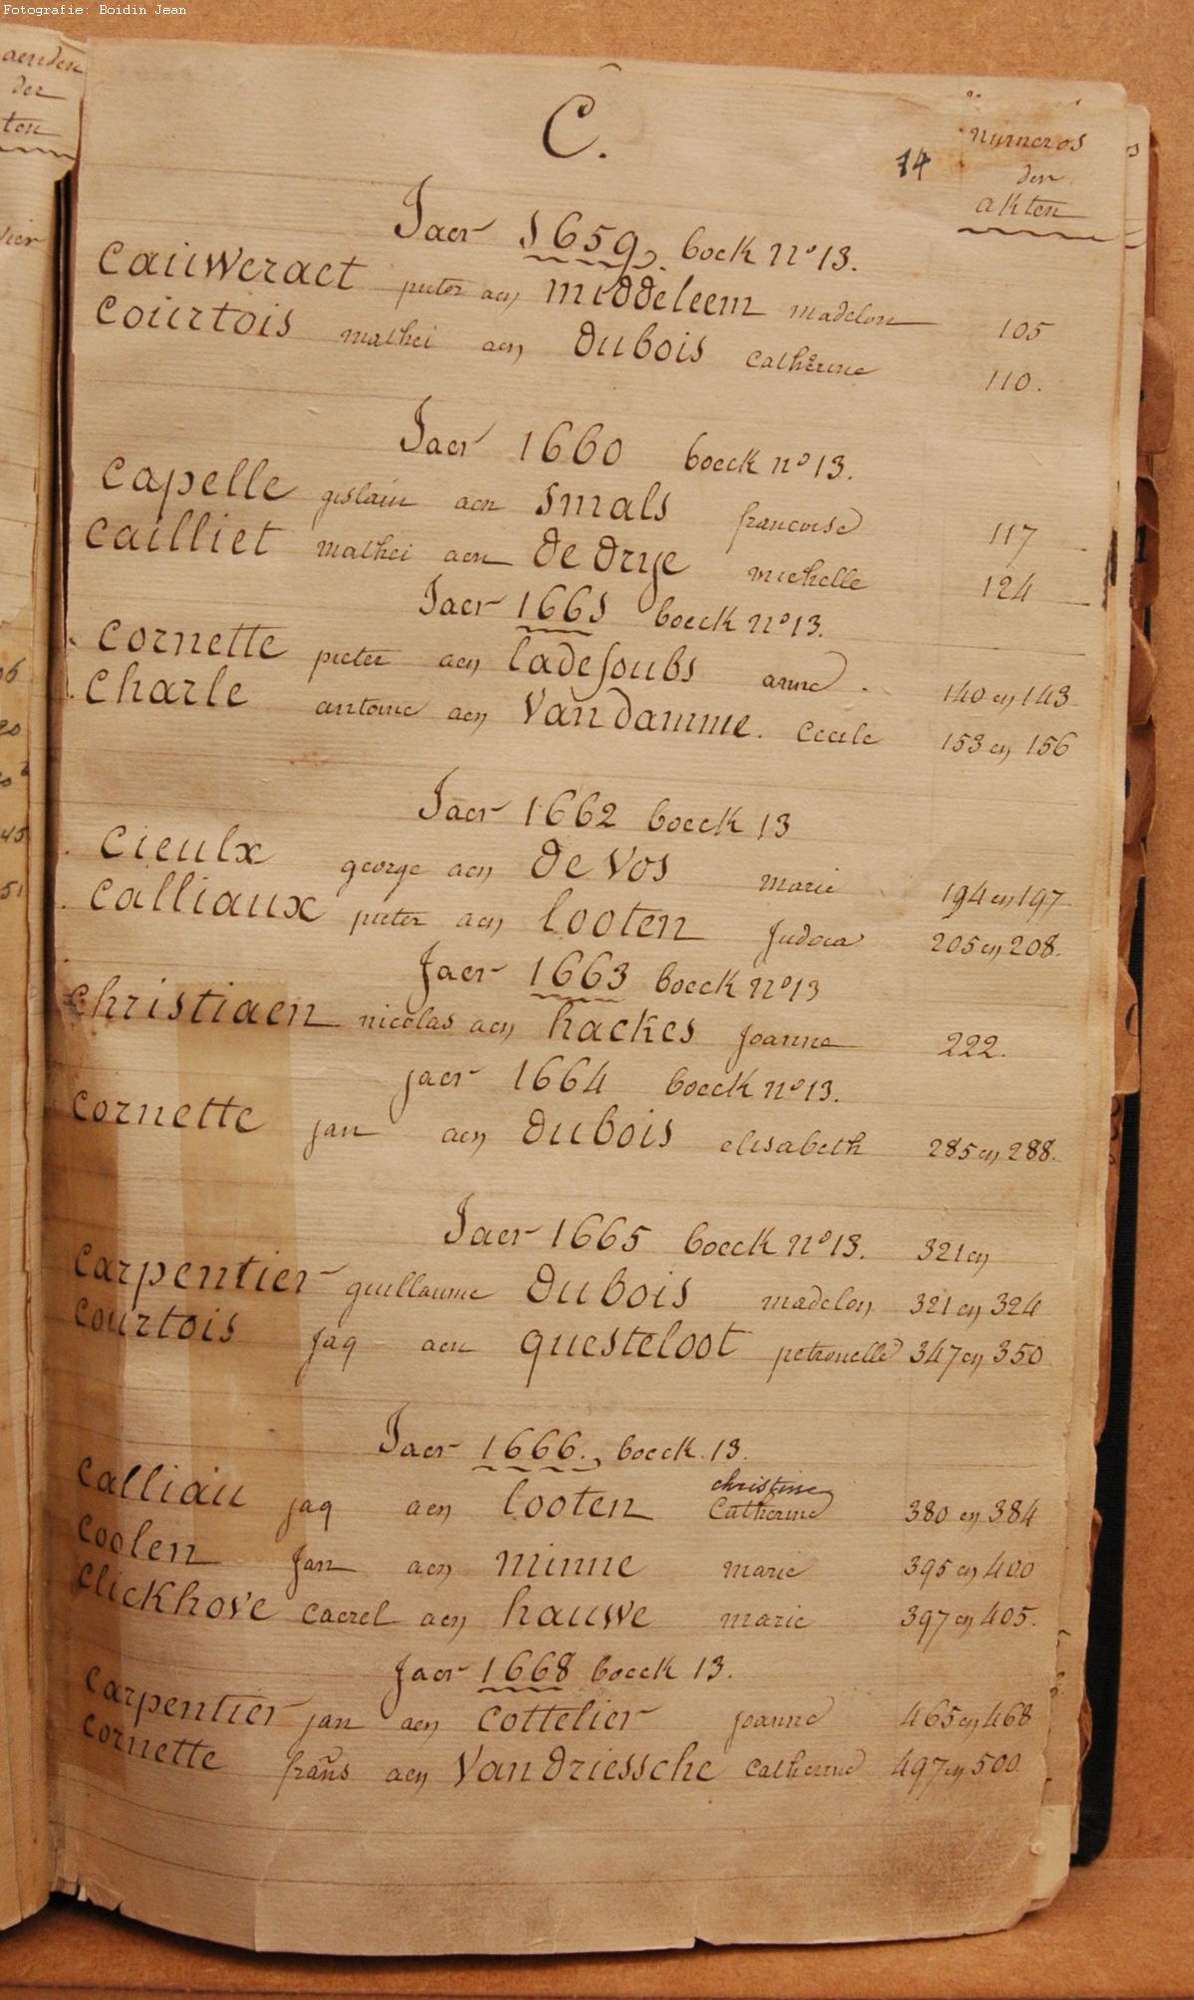 Fotografie: Boidin Jean
aenden
der
ten
C.
14
numeros
den
akten
Jaer 1659. boeck n° 13.
cauweraet pieter aen middeleem madelon 105
courtois mathei aen dubois catherine 110.
Jaer 1660 boeck n° 13.
capelle gislain aen smals francoise 117
cailliet mathei aen de drye michelle 124
Jaer 1661 boeck n° 13.
cornette pieter aen ladesoubs anne 140 en 143
charle antoine aen Vandamme. Cecile 153 en 156
Jaer 1662 boeck 13
cieulx george aen de Vos marie 194 en 197
calliaux pieter aen looten Judoca 205 en 208.
Jaer 1663 boeck n° 13
christiaen nicolas aen hackes Joanne 222.
jaer 1664 boeck n° 13.
cornette jan aen dubois elisabeth 285 en 288.
Jaer 1665 boeck n° 13. 321 en
carpentier guillaume dubois madelon 321 en 324
courtois Jaq aen questeloot petronelle 347 en 350
Jaer 1666. boeck 13.
christine
calliau jaq aen looten Catherine 380 en 384
coolen Jan aen minne marie 395 en 400
clickhove caerel aen hauwe marie 397 en 405.
Jaer 1668 boeck 13.
carpentier jan aen cottelier joanne 465 en 468
cornette frans aen Vandriessche catherine 497 en 500.